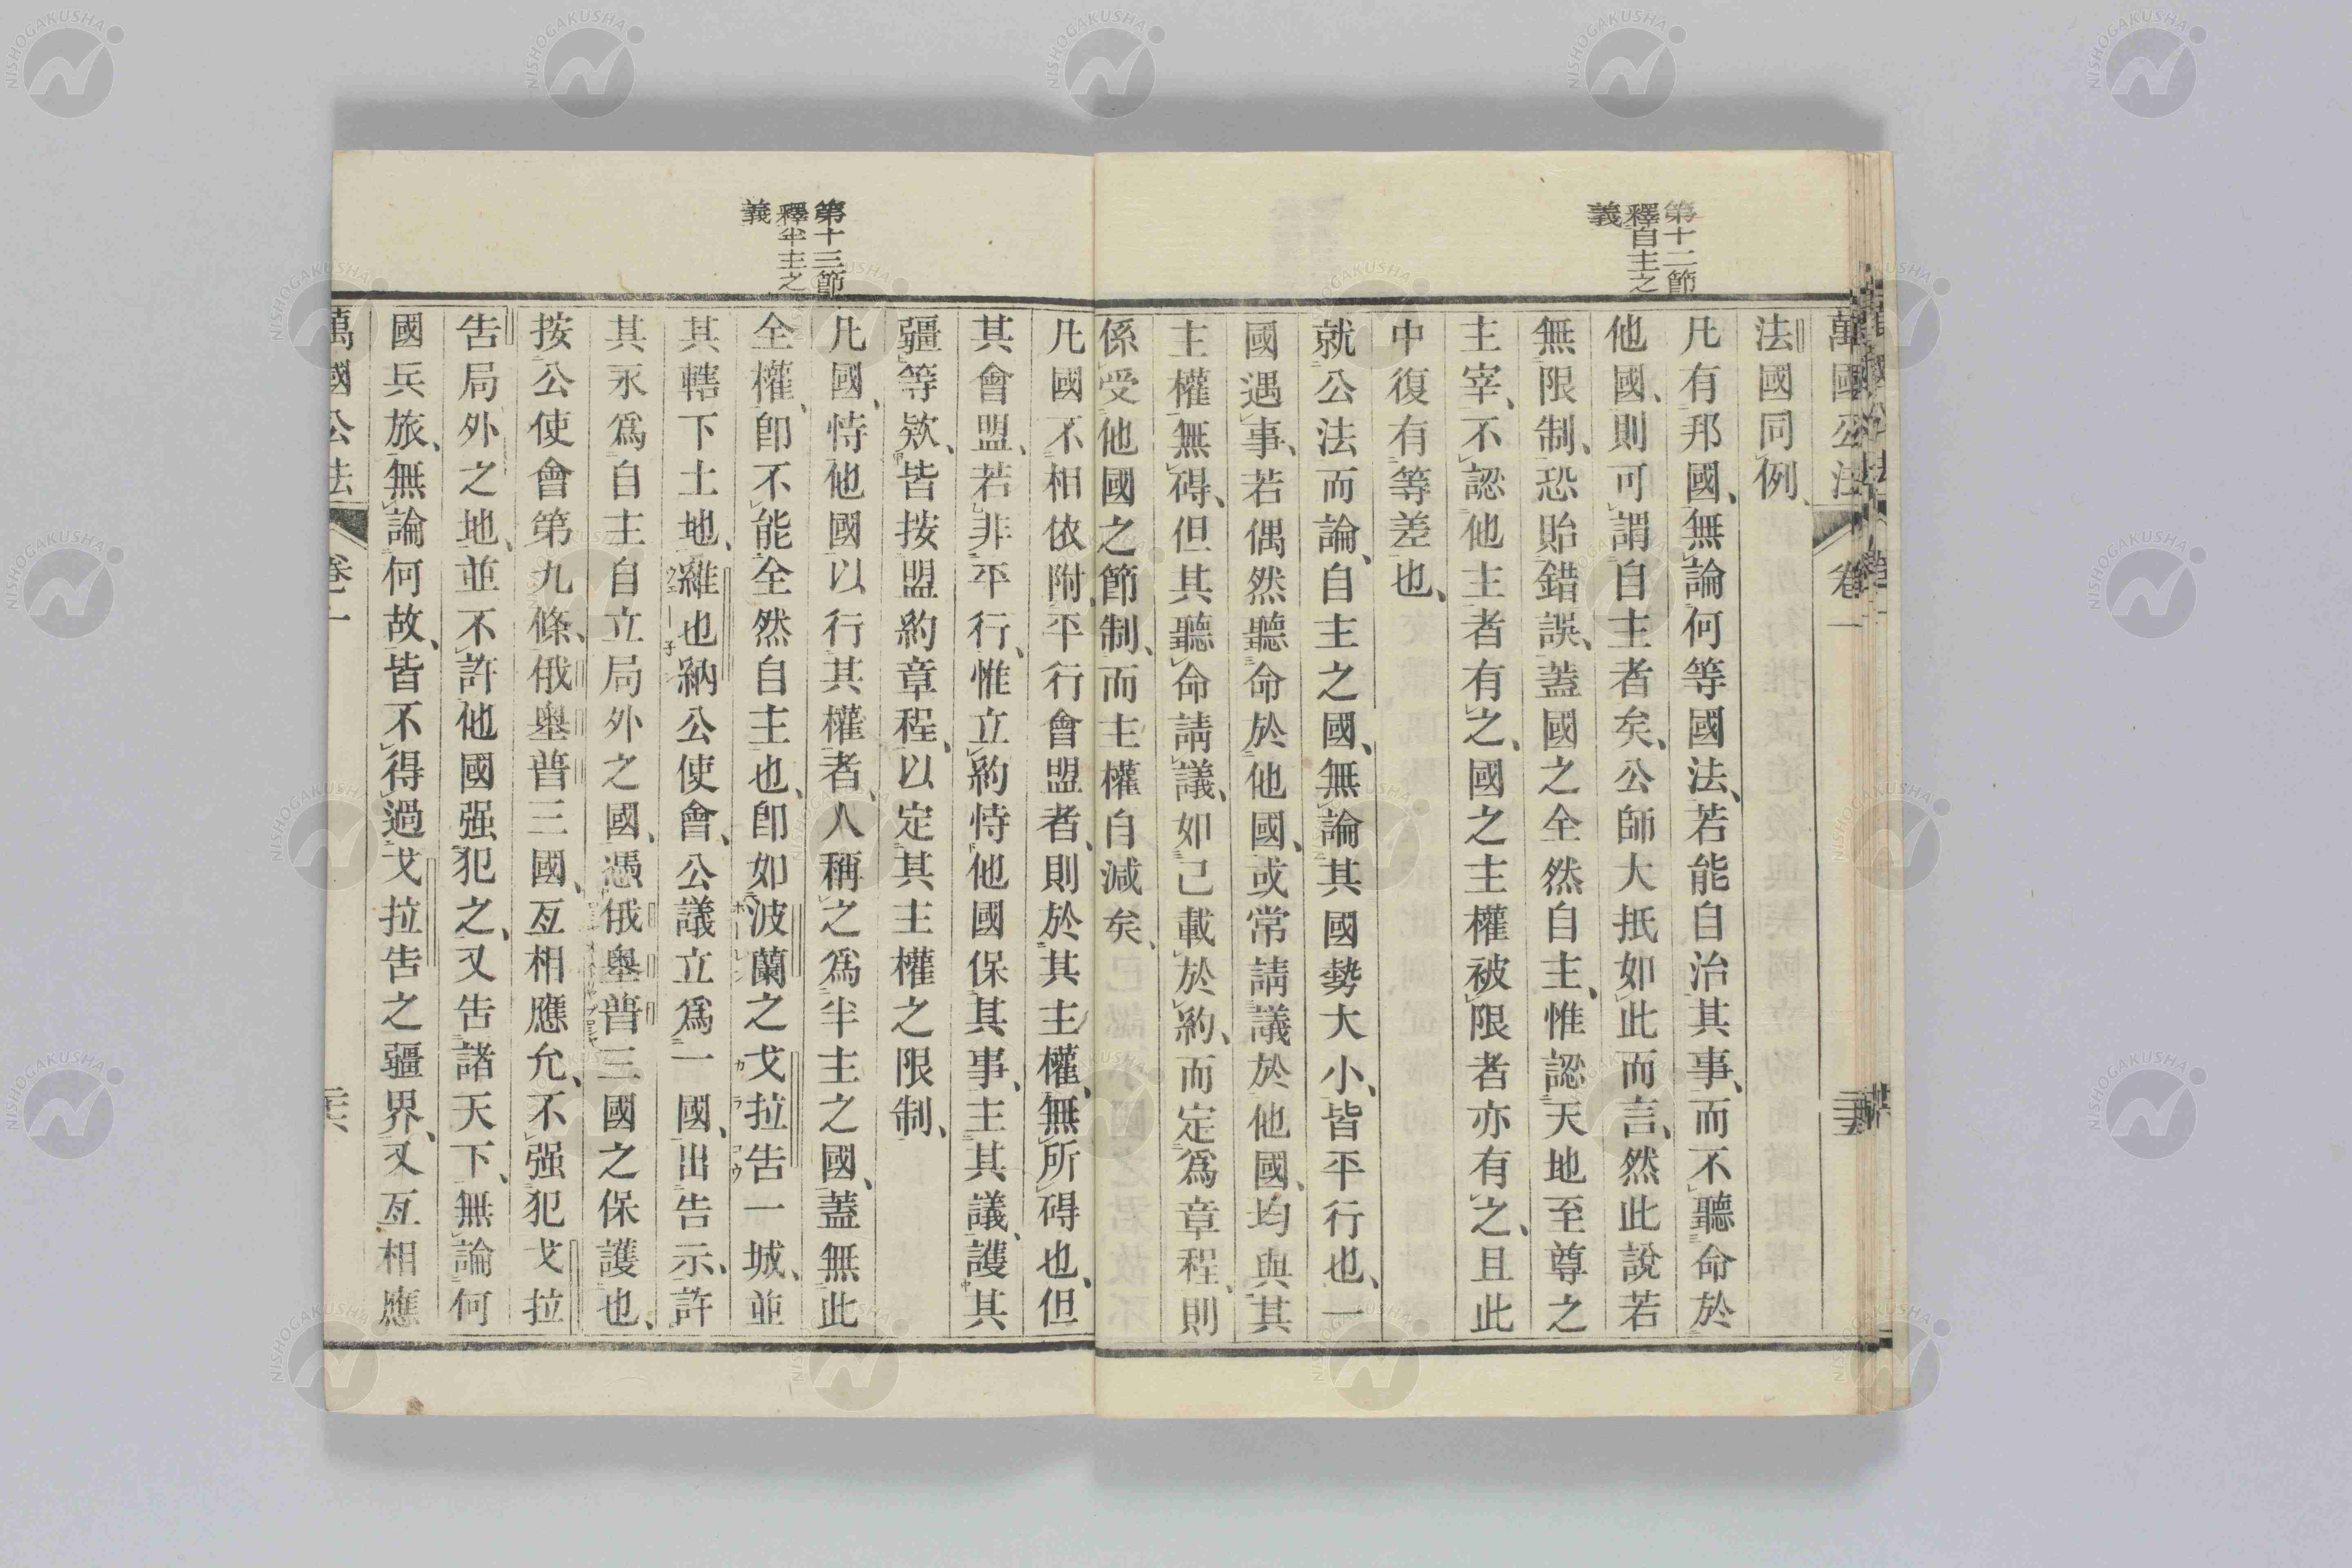 萬國公法 卷一
第十二節
釋自主之
義
法國同例、
凡有邦國、無論何等國法、若能自治其事、而不聽命於
他國、則可謂自主者矣、公師大抵如此而言、然此說若
無限制、恐貽錯誤、蓋國之全然自主、惟認天地至尊之
主宰、不認他主者有之、國之主權被限者亦有之、且此
中復有等差也、
就公法而論、自主之國、無論其國勢大小、皆平行也、一
國遇事、若偶然聽命於他國、或常請議於他國、均與其
主權無碍、但其聽命請議、如已載於約、而定爲章程、則
係受他國之節制、而主權自減矣、
凡國不相依附、平行會盟者、則於其主權、無所碍也、但
其會盟、若非平行、惟立約恃他國保其事、主其議、護其
疆等欵、皆按盟約章程、以定其主權之限制、
第十三節
釋半主之
義
凡國、恃他國以行其權者、人稱之爲半主之國、蓋無此
全權、卽不能全然自主也、卽如波蘭之戈拉告一城、並
其轄下土地、維也納公使會、公議立爲一國、出告示、許
其永爲自主自立局外之國、憑俄奧普三國之保護也、
按公使會第九條、俄奧普三國、互相應允、不强犯戈拉
告局外之地、並不許他國强犯之、又告諸天下、無論何
國兵旅、無論何故、皆不得過戈拉告之疆界、又互相應
萬國公法 卷一